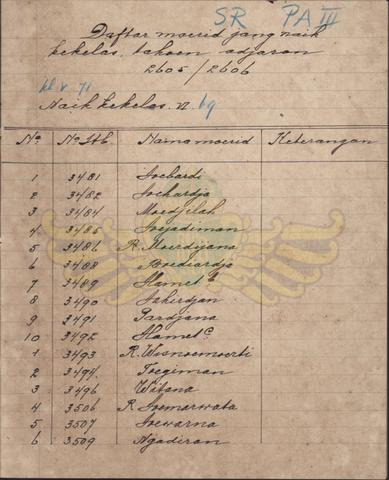 SR PA III
Daftar moerid jang naik
kekelas. tahoen adjaran
2605/2606
kl V 71
Naik kekelas. VI. 69
No. No. Stb Nama moerid Keterangan
1 3481 Soebardi
2 3482 Soehardjo
3 3484 Moedjilah
4 3485 Soejadiman
5 3486 R. Moerdijana
6 3488 Boediardjo
7 3489 Slamet b
8 3490 Soherdjan
9 3491 Pardjana
10 3492 Slamet c
1 3493 R. Wisnoemoerti
2 3494 Toegiman
3 3496 Witana
4 3506 R. Soemarwata
5 3507 Soewarna
6 3509 Ngadiran